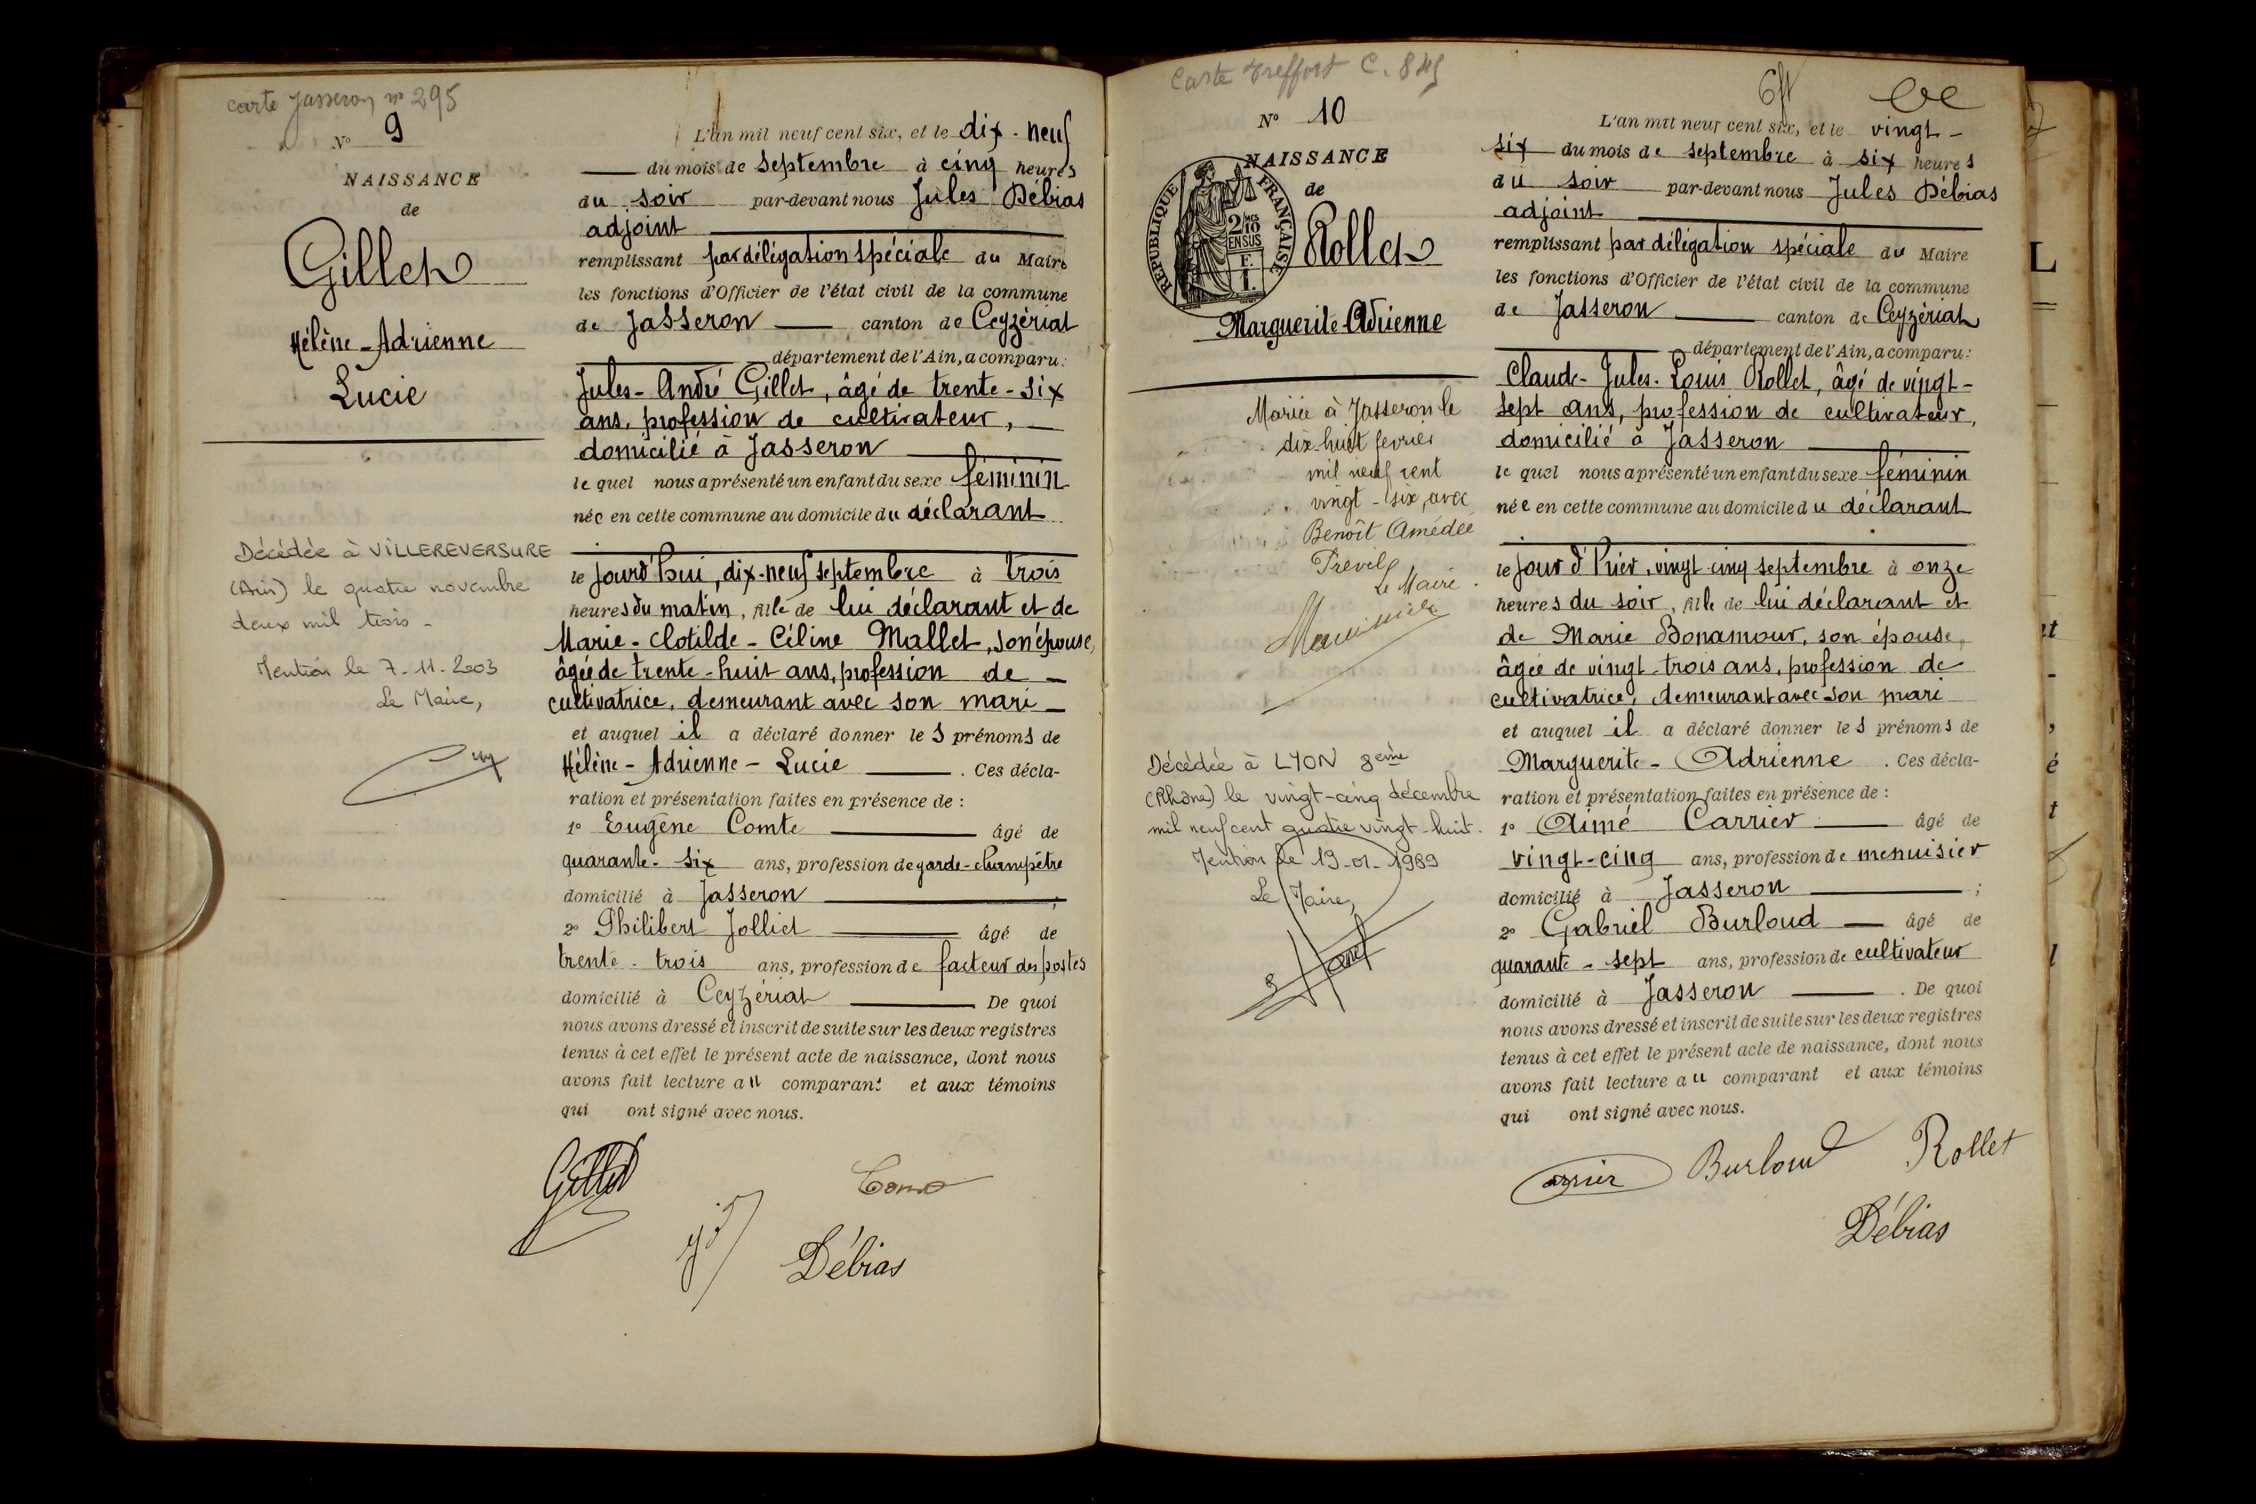 carte Jasseron n° 295
N° 9
NAISSANCE
de
Gillet
Hélène-Adrienne
Lucie
Décédée à VILLEREVERSURE
(Ain) le quatre novembre
deux mil trois -
Mention le 7-11-2003
Le Maire,
L'an mil neuf cent six, et le dix-neuf
du mois de septembre à cinq heures
du soir par-devant nous Jules Débias
adjoint
remplissant par délégation spéciale du Maire
les fonctions d'Officier de l'état civil de la commune
de Jasseron canton de Ceyzériat
département de l'Ain, a comparu:
Jules-André Gillet, âgé de trente-six
ans, profession de cultivateur,
domicilié à Jasseron
le quel nous a présenté un enfant du sexe féminin
née en cette commune au domicile du déclarant
le jourd'hui, dix-neuf septembre à trois
heures du matin, fille de lui déclarant et de
Marie-Clotilde-Céline Mallet, son épouse,
âgée de trente-huit ans, profession de
cultivatrice, demeurant avec son mari
et auquel il a déclaré donner les prénoms de
Hélène-Adrienne-Lucie. Ces décla-
ration et présentation faites en présence de :
1° Eugène Comte âgé de
quarante-six ans, profession de garde-champêtre
domicilié à Jasseron ;
2° Philibert Jolliet âgé de
trente-trois ans, profession de facteur des postes
domicilié à Ceyzériat De quoi
nous avons dressé et inscrit de suite sur les deux registres
tenus à cet effet le présent acte de naissance, dont nous
avons fait lecture au comparant et aux témoins
qui ont signé avec nous.
Gillet
Débias
Carte Treffort C. 845
N° 10
NAISSANCE
de
RÉPUBLIQUE FRANÇAISE
2/10
EN SUS
F.
1.
Rollet
Marguerite-Adrienne
Mariée à Jasseron le
dix-huit février
mil neuf cent
vingt-six, avec
Benoît Amédée
Prevel
Le Maire
Décédée à LYON 8eme
(Rhône) le vingt-cinq décembre
mil neuf cent quatre vingt-huit.
Mention le 19-01-1989
Le Maire,
L'an mil neuf cent six, et le vingt-
six du mois de septembre à six heures
du soir par-devant nous Jules Débias
adjoint
remplissant par délégation spéciale du Maire
les fonctions d'Officier de l'état civil de la commune
de Jasseron canton de Ceyzériat
département de l'Ain, a comparu:
Claude-Jules-Louis Rollet, âgé de vingt-
sept ans, profession de cultivateur,
domicilié à Jasseron
le quel nous a présenté un enfant du sexe féminin
née en cette commune au domicile du déclarant
le jour d'hier, vingt cinq septembre à onze
heures du soir, fille de lui déclarant et
de Marie Bonamour, son épouse,
âgée de vingt-trois ans, profession de
cultivatrice, demeurant avec son mari
et auquel il a déclaré donner les prénoms de
Marguerite-Adrienne. Ces décla-
ration et présentation faites en présence de :
1° Aimé Carrier âgé de
vingt-cinq ans, profession de menuisier
domicilié à Jasseron ;
2° Gabriel Burloud âgé de
quarante-sept ans, profession de cultivateur
domicilié à Jasseron. De quoi
nous avons dressé et inscrit de suite sur les deux registres
tenus à cet effet le présent acte de naissance, dont nous
avons fait lecture au comparant et aux témoins
qui ont signé avec nous.
Burloud Rollet
Débias